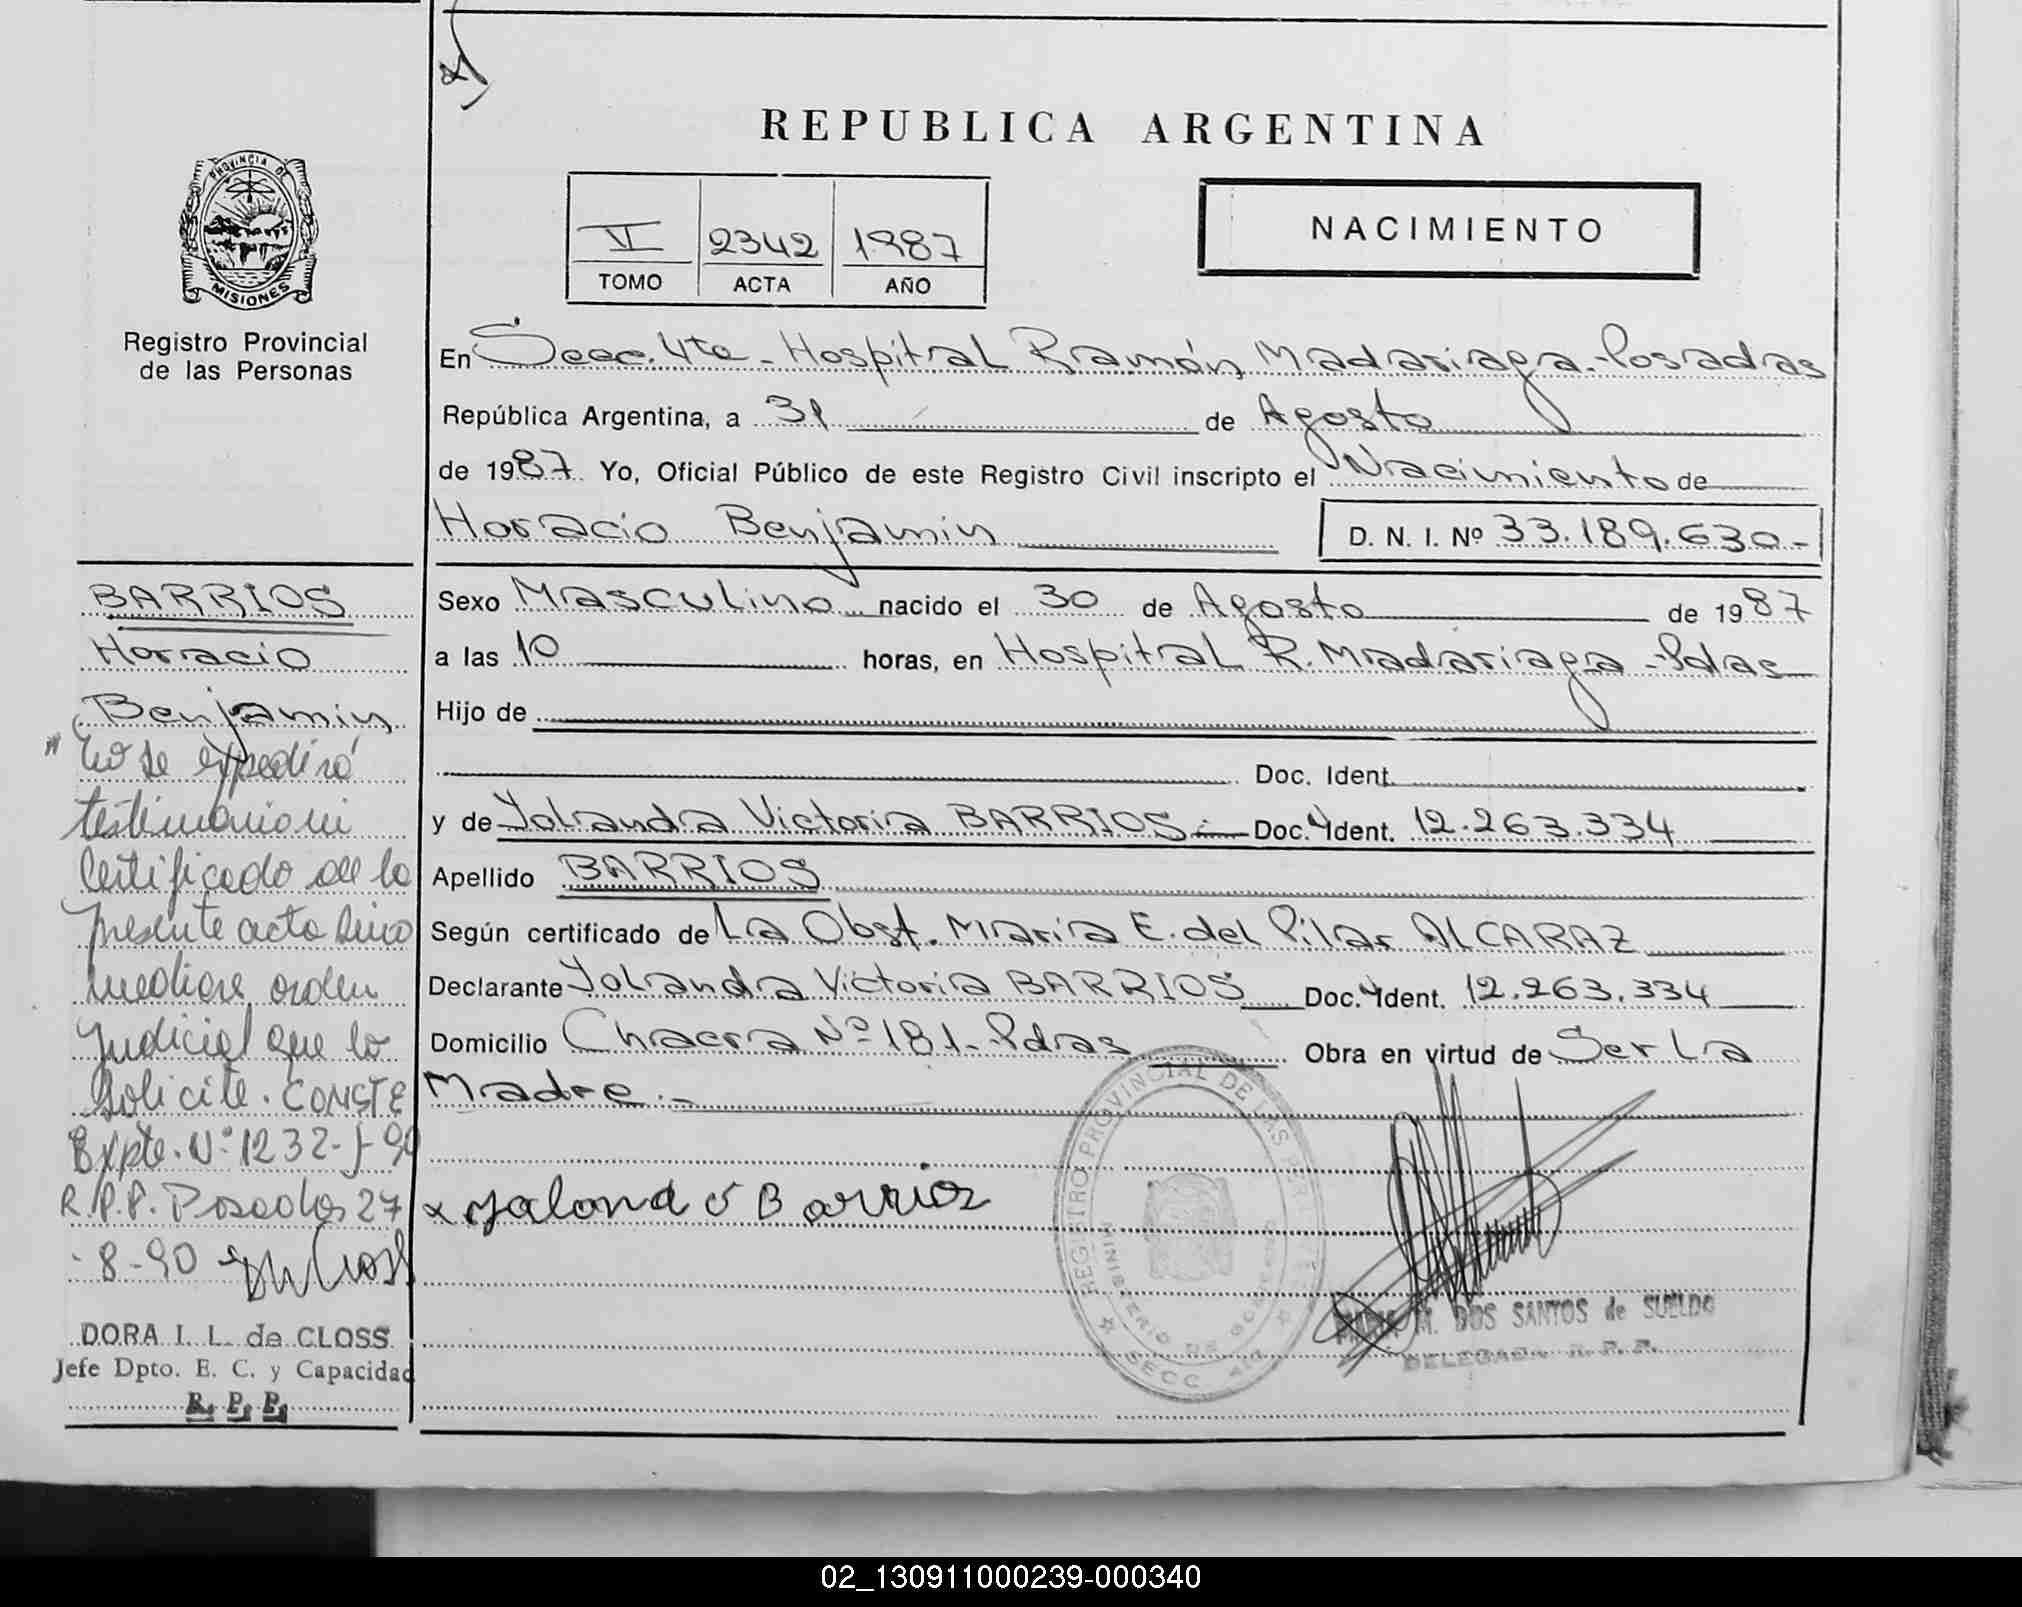 REPUBLICA ARGENTINA
PROVINCIA DE
MISIONES
Registro Provincial
de las Personas
VI 2342 1987
TOMO ACTA AÑO
NACIMIENTO
En Secc. 4ta - Hospital Ramón Madariaga - Posadas
República Argentina, a 31 de Agosto
de 1987. Yo, Oficial Público de este Registro Civil inscripto el Nacimiento de
Horacio Benjamin D. N. I. Nº 33.189.630-
Sexo Masculino nacido el 30 de Agosto de 1987
a las 10 horas, en Hospital R. Madariaga - Pdas
Hijo de
Doc. Ident.
y de Yolanda Victoria BARRIOS Doc. Ident. 12.263.334
Apellido BARRIOS
Según certificado de La Obst. Maria E. del Pilar ALCARAZ
Declarante Yolanda Victoria BARRIOS Doc. Ident. 12.263.334
Domicilio Chacra Nº 181 - Pdas Obra en virtud de Ser La
Madre.-
x Yolanda V Barrios
REGISTRO PROVINCIAL DE LAS PER
MINISTERIO DE GOBIERNO
SECC. 4ta
M. DOS SANTOS de SUELDO
DELEGADA R. P. P.
BARRIOS
Horacio
Benjamin
"No se expedirá
testimonio ni
Certificado de la
presente acta sino
mediare orden
Judicial que lo
Solicite. CONSTE
Expte. Nº 1232-J-90
R.P.P. Posadas 27
-8-90
DORA I. L. de CLOSS
Jefe Dpto. E. C. y Capacidad
R. P. P.
02_130911000239-000340